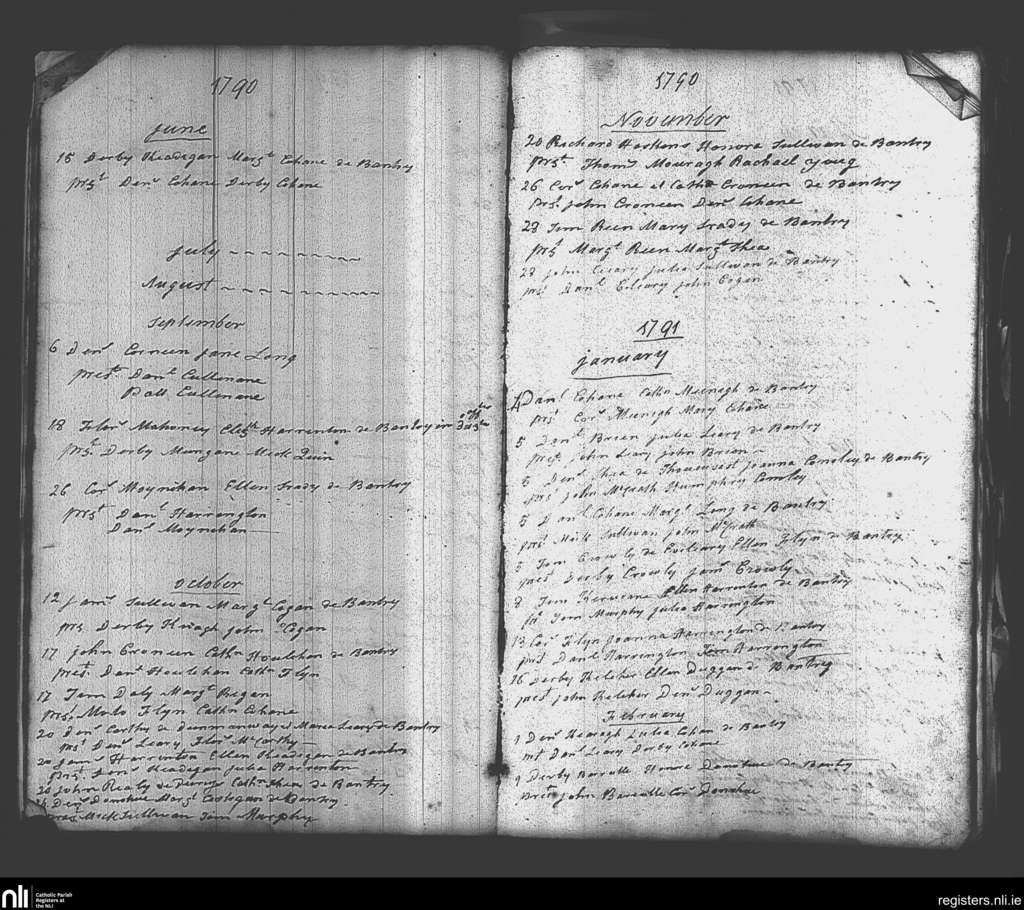 1790
June
15 Derby Headegan Margt Cohane de Bantry
prst Denl Cohane Derby Cohane
July
August
September
6 Denl Corneen Jane Long
prest Danl Cullenane
Patt Cullenane
18 Florc Mahoney Elizth Harrenton de Bantry in
prst Derby Mungane Mick Quin
26 Corl Moynihan Ellen Grady de Bantry
prst Danl Harrington
Danl Moynihan
October
12 Jams Sullivan Margt Cogan de Bantry
prs Derby Kivagh John Cogan
17 John Croneen Cathn Houlehan de Bantry
prest Danl Houlehan Cathn Flyn
17 Tom Daly Margt Regan
prst Mato Flyn Cathn Cohane
20 Denl Carthy de Dunmanway Leary de Bantry
prst Denl Leary Florc McCarthy
20 Jams Harrenton Ellen Headegan de Bantry
prst Headegan Julia Harrenton
20 John Realy de Cathn Shea de Bantry
Denl Donohue Margt Costegan de Bantry
Mick Sullivan Tom Murphy
1790
November
20 Richard Hoskens Honora Sullivan de Bantry
prst Thoms Mouragh Rachael Young
26 Corl Cohane et Cathn Croneen de Bantry
prst John Croneen Denl Cohane
28 Tom Reen Mary Grady de Bantry
prst Margt Reen Margt Shea
28 John Leary Julia Sullivan de Bantry
prst Danl Leary John Cogan
1791
January
4 Danl Cohane Cathn Meenegh de Bantry
prst Corl Meenegh Mary Cohane
5 Danl Brien Julia Leary de Bantry
prest John Leary John Brien
5 Denl Shea de Joanna Comoley de Bantry
prst John McGrath Humphry Comoley
5 Danl Cohane Margt Long de Bantry
prst Mick Sullivan John McGrath
5 Tom Crowly de Ellen Flyn de Bantry
prest Derby Crowly Jams Crowly
8 Tom Ellen Harrenton de Bantry
Tom Murphy Julia Harrington
13 Cor Flyn Joanna Harrington de Bantry
prst Danl Harrington Tom Harrington
16 Derby Keleher Ellen Duggan de Bantry
prest John Keleher Denl Duggan
February
1 Denl Julia Cohan de Bantry
Danl Leary Derby Cohane
9 Derby Barratte Honore Donohue de Bantry
prest John Barratte Corl Donohue
nli
Catholic Parish
Registers at
the NLI
registers.nli.ie